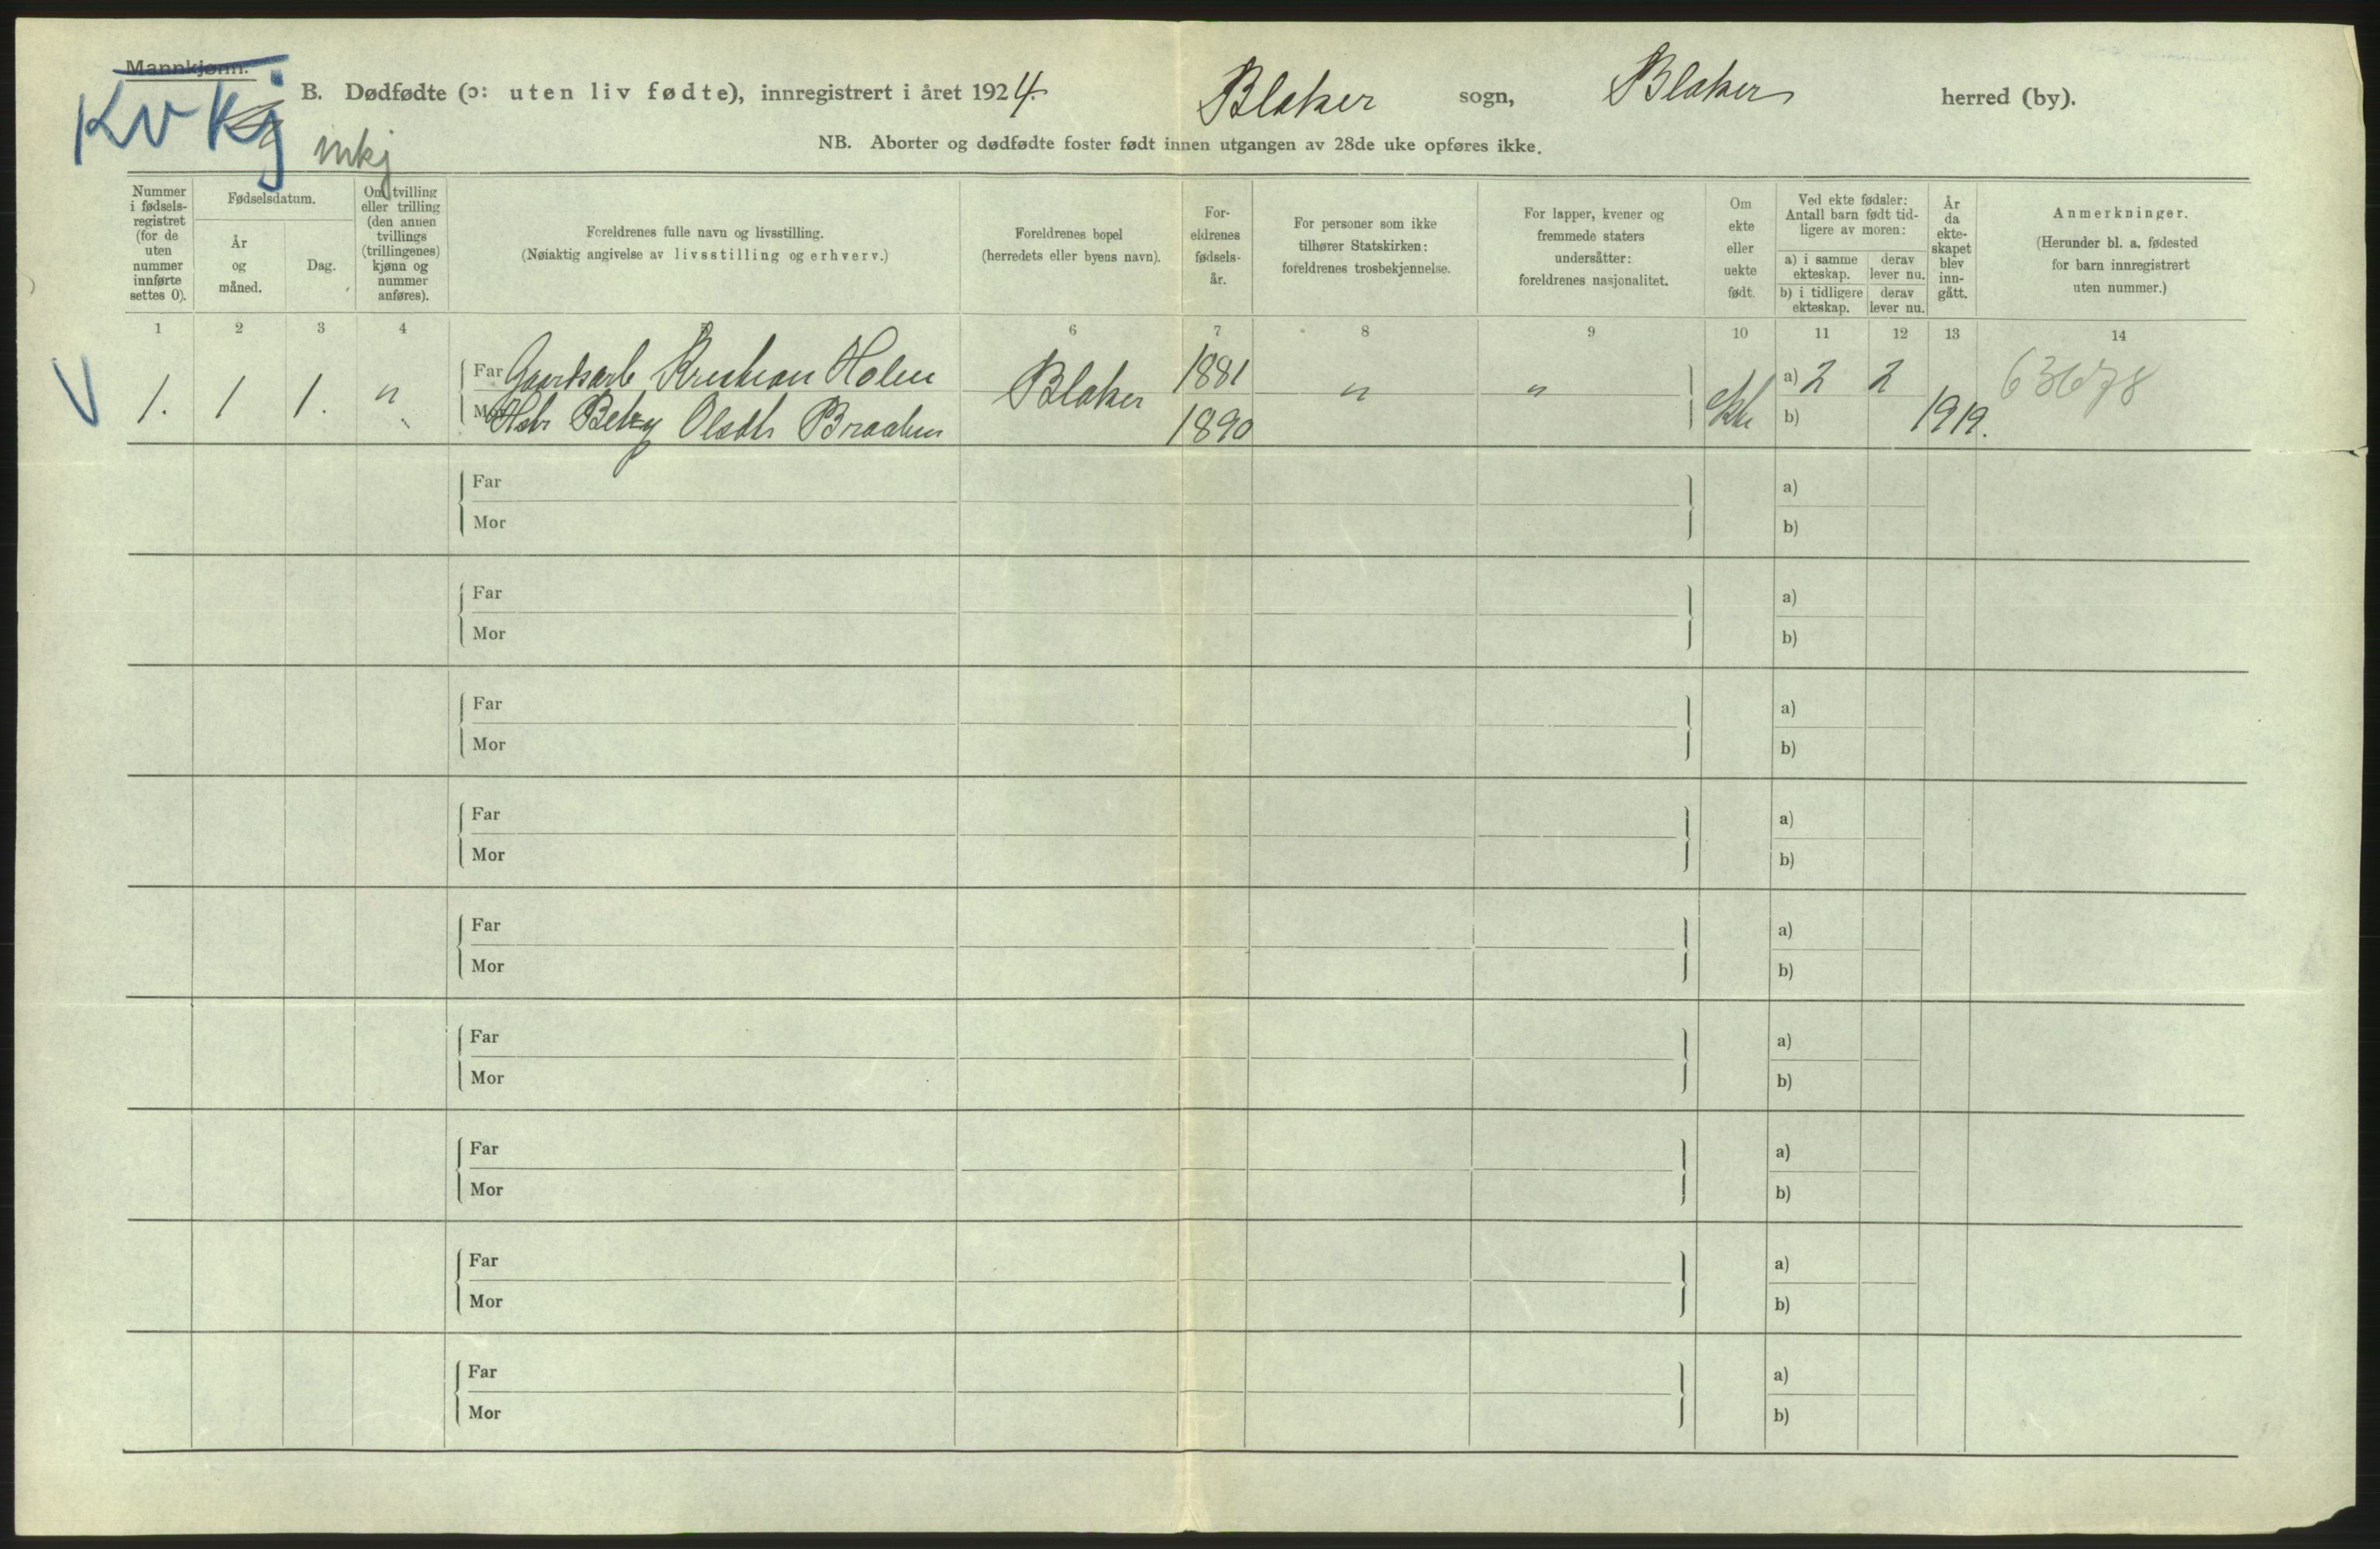 Mannkjønn.
Kv Kj
mkj
B. Dødfødte (ɔ: uten liv fødte), innregistrert i året 1924. Blaker sogn, Blaker herred (by).
NB. Aborter og dødfødte foster født innen utgangen av 28de uke opføres ikke.
Nummer
i fødsels-
registret
(for de
uten
nummer
innførte
settes 0).
Fødselsdatum.
År
og
måned.
Dag.
Om tvilling
eller trilling
(den annen
tvillings
(trillingenes)
kjønn og
nummer
anføres).
Foreldrenes fulle navn og livsstilling.
(Nøiaktig angivelse av livsstilling og erhverv.)
Foreldrenes bopel
(herredets eller byens navn).
For-
eldrenes
fødsels-
år.
For personer som ikke
tilhører Statskirken:
foreldrenes trosbekjennelse.
For lapper, kvener og
fremmede staters
undersåtter:
foreldrenes nasjonalitet.
Om
ekte
eller
uekte
født.
Ved ekte fødsler:
Antall barn født tid-
ligere av moren:
a) i samme
ekteskap.
derav
lever nu.
b) i tidligere
ekteskap.
derav
lever nu.
År
da
ekte-
skapet
blev
inn-
gått.
Anmerkninger.
(Herunder bl. a. fødested
for barn innregistrert
uten nummer.)
1 2 3 4 5 6 7 8 9 10 11 12 13 14
V 1. 1 1. " Far Gaardsarb Kristian Holen Blaker 1881 " " ekte a) 2 2 1919. 63678
Mor Hstr Betzy Olsdtr Braaten 1890 b)
Far a)
Mor b)
Far a)
Mor b)
Far a)
Mor b)
Far a)
Mor b)
Far a)
Mor b)
Far a)
Mor b)
Far a)
Mor b)
Far a)
Mor b)
Far a)
Mor b)